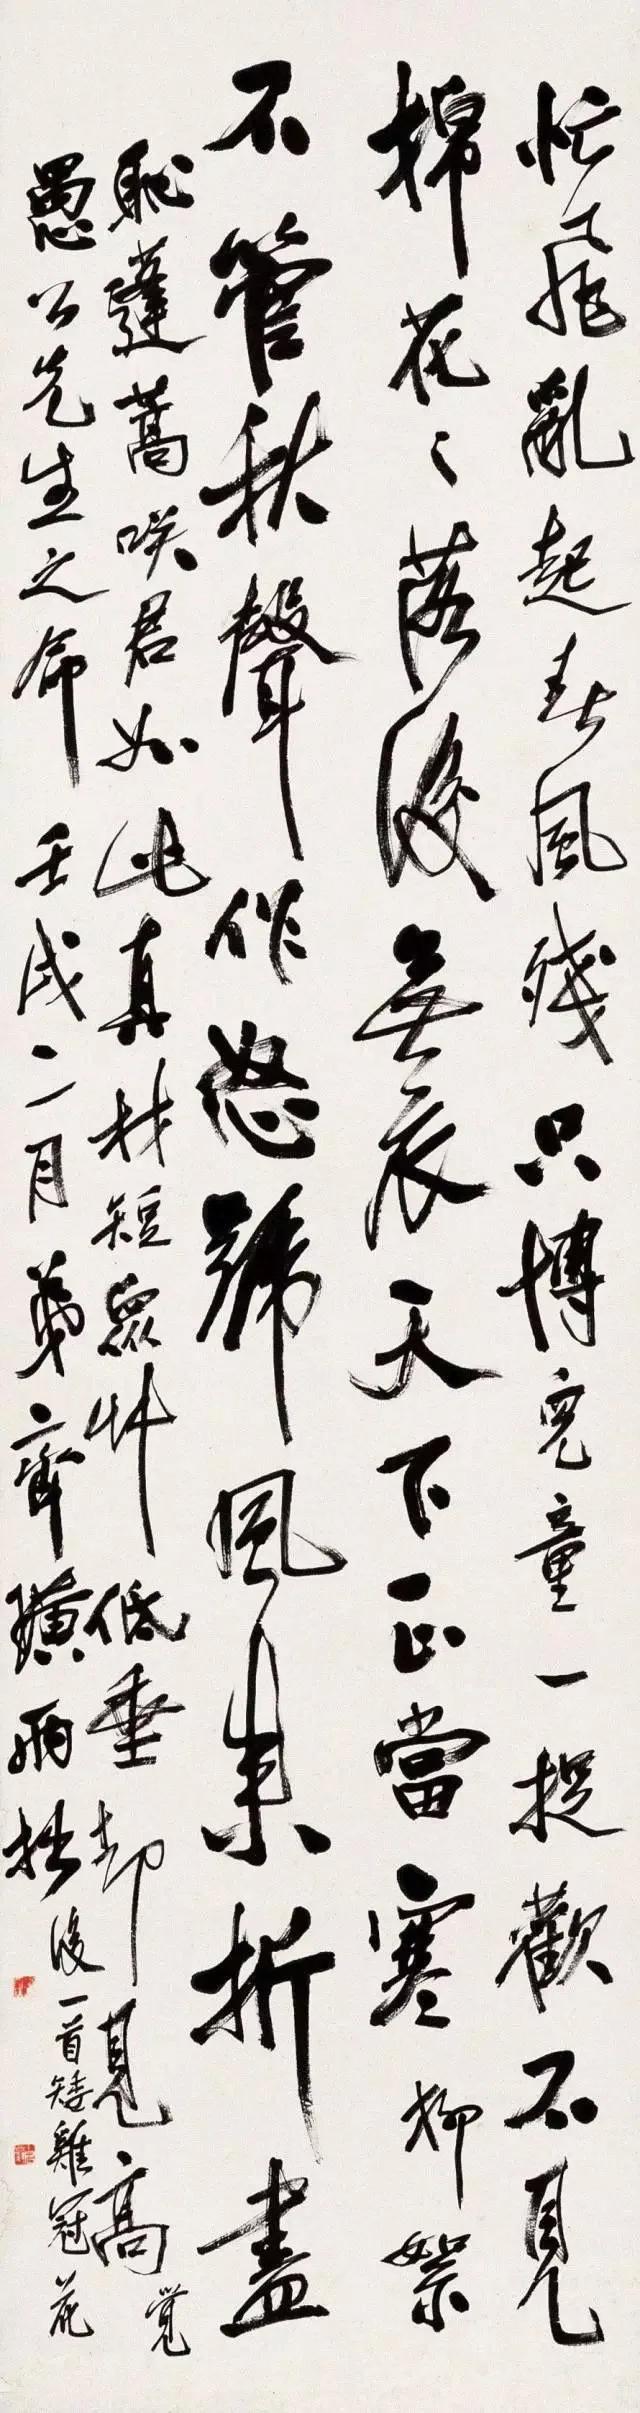 忙飛亂起春風殘只博兒童一捉歡不見
棉花〻落後無衣天下正當寒柳絮
不管秋聲作怒號風來折盡
恥蓬蒿咲君如此真材短眾艸低垂却見高覺
愚公先生之命壬戌二月弟齊璜
後一首矮雞冠花